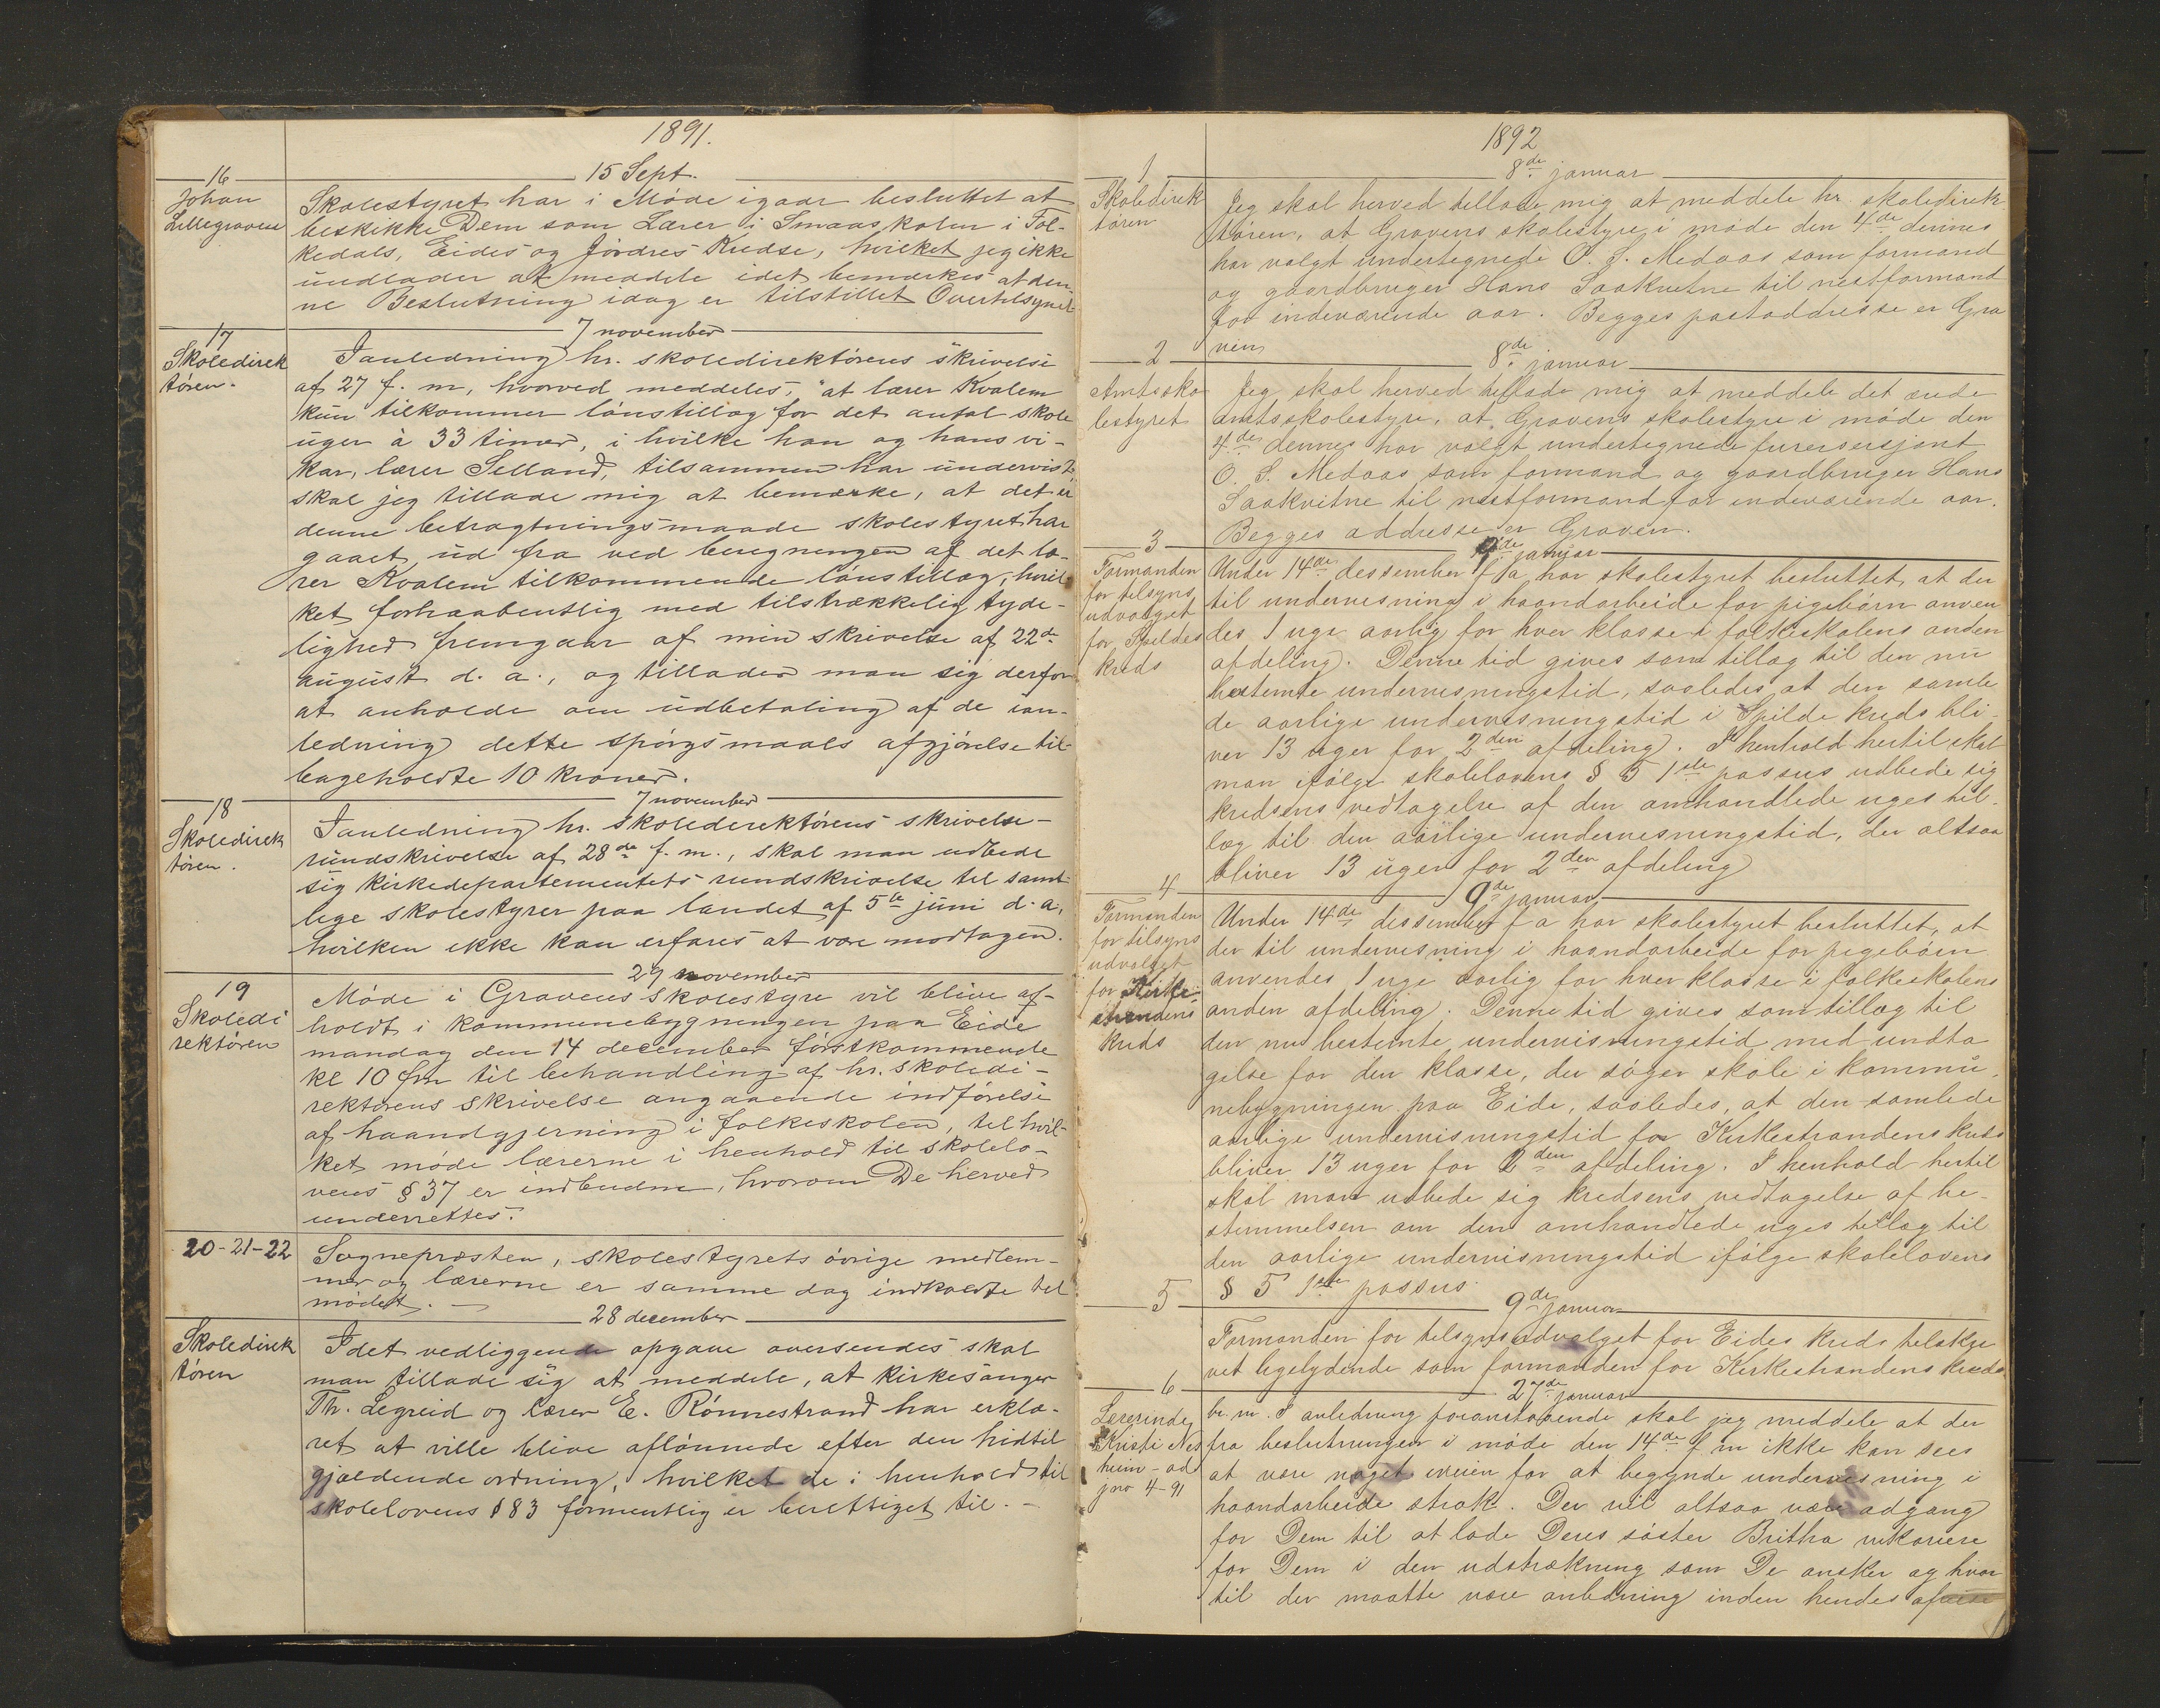 1891.
16
15 Sept.
Johan
Lillegraven
Skolestyret har i Møde igaar besluttet at
beskikke Dem som Lærer i Smaaskolen i Fol-
kedals, Eides og Jordres Kredse, hvilket jeg ikke
undlader at meddele idet bemærkes at den-
ne Beslutning idag er tilstillet Overtilsynet
17
7 november
Skoledirek
tøren.
Ianledning hr. skoledirektørens skrivelse
af 27 f. m, hvorved meddeles, "at lærer Kvalem
kun tilkommer lønstillæg for det antal skole
uger à 33 timer, i hvilke han og hans vi-
kar, lærer Selland, tilsammen har undervist"
skal jeg tillade mig at bemærke, at det er
denne betragtningsmaade skolestyret har
gaaet ud fra ved beregningen af det læ-
rer Kvalem tilkommende lønstillæg, hvil
ket forhaabentlig med tilstrækkelig tyde-
lighed fremgaar af min skrivelse af 22de
august d. a., og tillader man sig derfor
at anholde om udbetaling af de ian-
ledning dette spørgsmaals afgjørelse til-
bageholdte 10 kroner.
18
7 november
Skoledirek
tøren.
Ianledning hr. skoledirektørens skrivelse-
rundskrivelse af 28de f. m., skal man udbede
sig kirkedepartementets rundskrivelse til samt-
lige skolestyrer paa landet af 5te juni d. a.
hvilken ikke kan erfares at være modtagen.
19
29 november
Skoledi
rektøren
Møde i Gravens skolestyre vil blive af-
holdt i kommunebygningen paa Eide
mandag den 14 december førstkommende
kl 10 fm til behandling af hr. skoledi-
rektørens skrivelse angaaende indførelse
af haandgjerning i folkeskolen, til hvil-
ket møde lærerne i henhold til skolelo-
vens § 37 er indbudne, hvorom De herved
underrettes.
20-21-22
Sognepresten, skolestyrets øvrige medlem-
mer og lærerne er samme dag indkaldte til
mødet. —
28 december
Skoledirek
tøren
Idet vedliggende opgave oversendes skal
man tillade sig at meddele, at kirkesanger
Th. Legreid og lærer E. Rønnestrand har erklæ-
ret at ville blive aflønnede efter den hidtil
gjældende ordning, hvilket de i henhold til
skolelovens § 83 formentlig er berettiget til. —
1892
1
8de januar
Skoledirek
tøren
Jeg skal herved tillade mig at meddele hr. skoledirek
tøren, at Gravens skolestyre i møde den 4de dennes
har valgt undertegnede O. S. Medaas som formand
og gaardbruger Hans Saakvitne til nestformand
for indeværende aar. Begges postaddresse er Gra
ven
2
8de januar
Amtssko
lestyret
Jeg skal herved tillade mig at meddele det ærede
amtsskolestyre, at Gravens skolestyre i møde den
4de dennes har valgt undertegnede furersersjant
O. S. Medaas som formand og gaardbruger Hans
Saakvitne til nestformand for indeværende aar.
Begges addresse er Graven.
3
9de januar
Formanden
for tilsyns
udvalget
for Spildes
kreds
Under 14de dessember f a har skolestyret besluttet, at der
til undervisning i haandarbeide for pigebørn anven
des 1 uge aarlig for hver klasse i folkeskolens anden
afdeling. Denne tid gives som tillæg til den nu
bestemte undervisningstid, saaledes at den samle
de aarlige undervisningstid i Spilde kreds bli-
ver 13 uger for 2den afdeling. I henhold hertil skal
man ifølge skolelovens § 5 1ste passus udbede sig
kredsens vedtagelse af den omhandlede uges til-
læg til den aarlige undervisningstid, der altsaa
bliver 13 uger for 2den afdeling
4
9de januar
Formanden
for tilsyns
udvalget
for Kirke-
strandens
kreds
Under 14de dessember f a har skolestyret besluttet, at
der til undervisning i haandarbeide for pigebørn
anvendes 1 uge aarlig for hver klasse i folkeskolens
anden afdeling. Denne tid gives som tillæg til
den nu bestemte undervisningstid med undta
gelse for den klasse, der søger skole i kommu-
nebygningen paa Eide, saaledes, at den samlede
aarlige undervisningstid for Kirkestrandens kreds
bliver 13 uger for 2den afdeling. I henhold hertil
skal man udbede sig kredsens vedtagelse af be-
stemmelsen om den omhandlede uges tillæg til
den aarlige undervisningstid ifølge skolelovens
§ 5 1ste passus
5
9de januar
Formanden for tilsynsudvalget for Eides kreds tilskre
vet ligelydende som formanden for Kirkestrandens kreds
6
27de januar
Lærerinde
Kristi Nes
heim - ad
jno 4-91
br. m. I anledning foranstaaende skal jeg meddele at der
fra beslutningen i møde den 14de f m ikke kan sees
at være noget iveien for at begynde undervisning i
haandarbeide straks. Der vil altsaa være adgang
for Dem til at lade Deres søster Britha vikariere
for Dem i den udstrækning som De ønsker og hvor
til der maatte være anledning inden hendes afreise